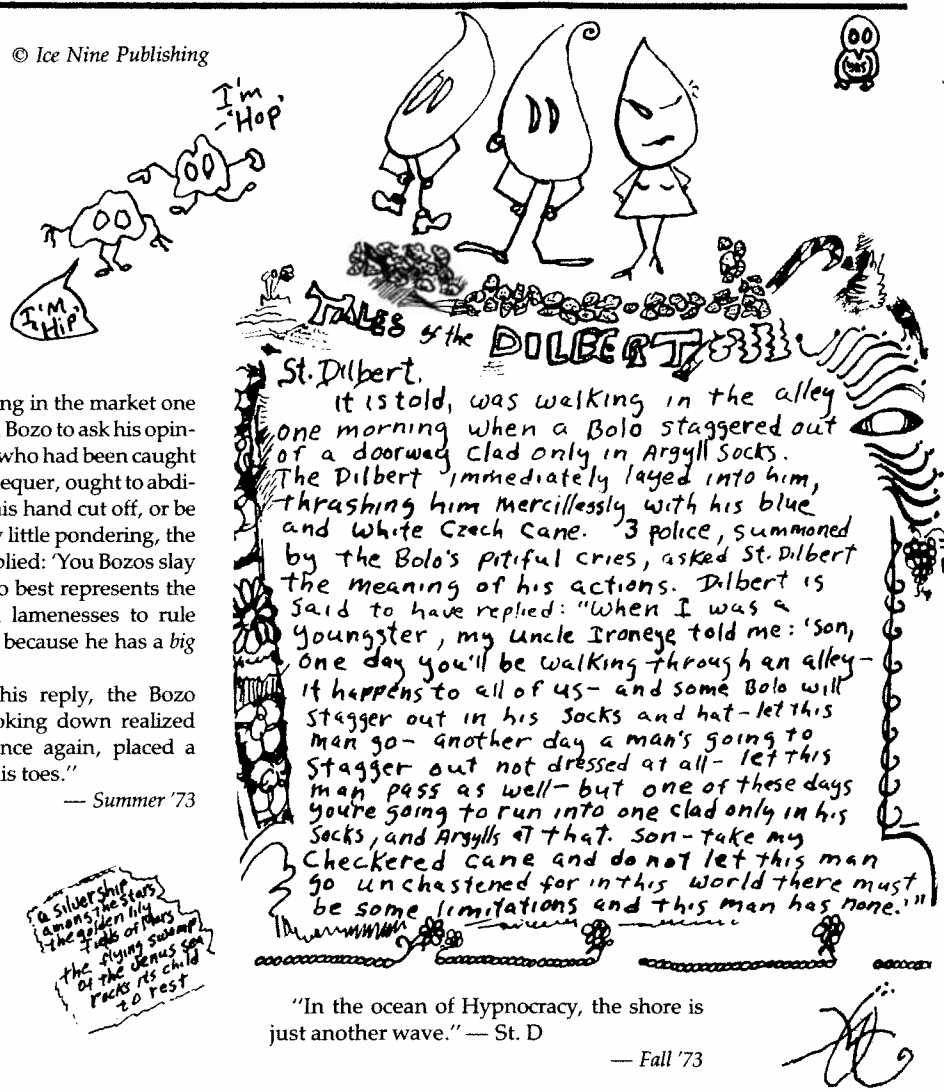 © Ice Nine Publishing
I'm
'Hop'
I'M
'Hip'
yes
ng in the market one
Bozo to ask his opin-
who had been caught
equer, ought to abdi-
is hand cut off, or be
little pondering, the
plied: 'You Bozos slay
o best represents the
lamenesses to rule
because he has a big
his reply, the Bozo
oking down realized
nce again, placed a
is toes."
— Summer '73
a silver ship
among the stars
the golden lily
fields of Mars
the flying swamp
of the Venus sea
rocks its child
to rest
TALES of the DILBERT
St. Dilbert,
it is told, was walking in the alley
one morning when a Bolo staggered out
of a doorway clad only in Argyll Socks.
The Dilbert immediately layed into him,
thrashing him mercillessly with his blue
and white Czech Cane. 3 police, summoned
by the Bolo's pitiful cries, asked St. Dilbert
the meaning of his actions. Dilbert is
said to have replied: "When I was a
youngster, my uncle Ironeye told me: 'Son,
one day you'll be walking through an alley-
it happens to all of us- and some Bolo will
stagger out in his socks and hat- let this
man go- another day a man's going to
stagger out not dressed at all- let this
man pass as well- but one of these days
you're going to run into one clad only in his
Socks, and Argylls at that. Son- take my
Checkered cane and do not let this man
go unchastened for in this world there must
be some limitations and this man has none.'"
"In the ocean of Hypnocracy, the shore is
just another wave." — St. D
— Fall '73